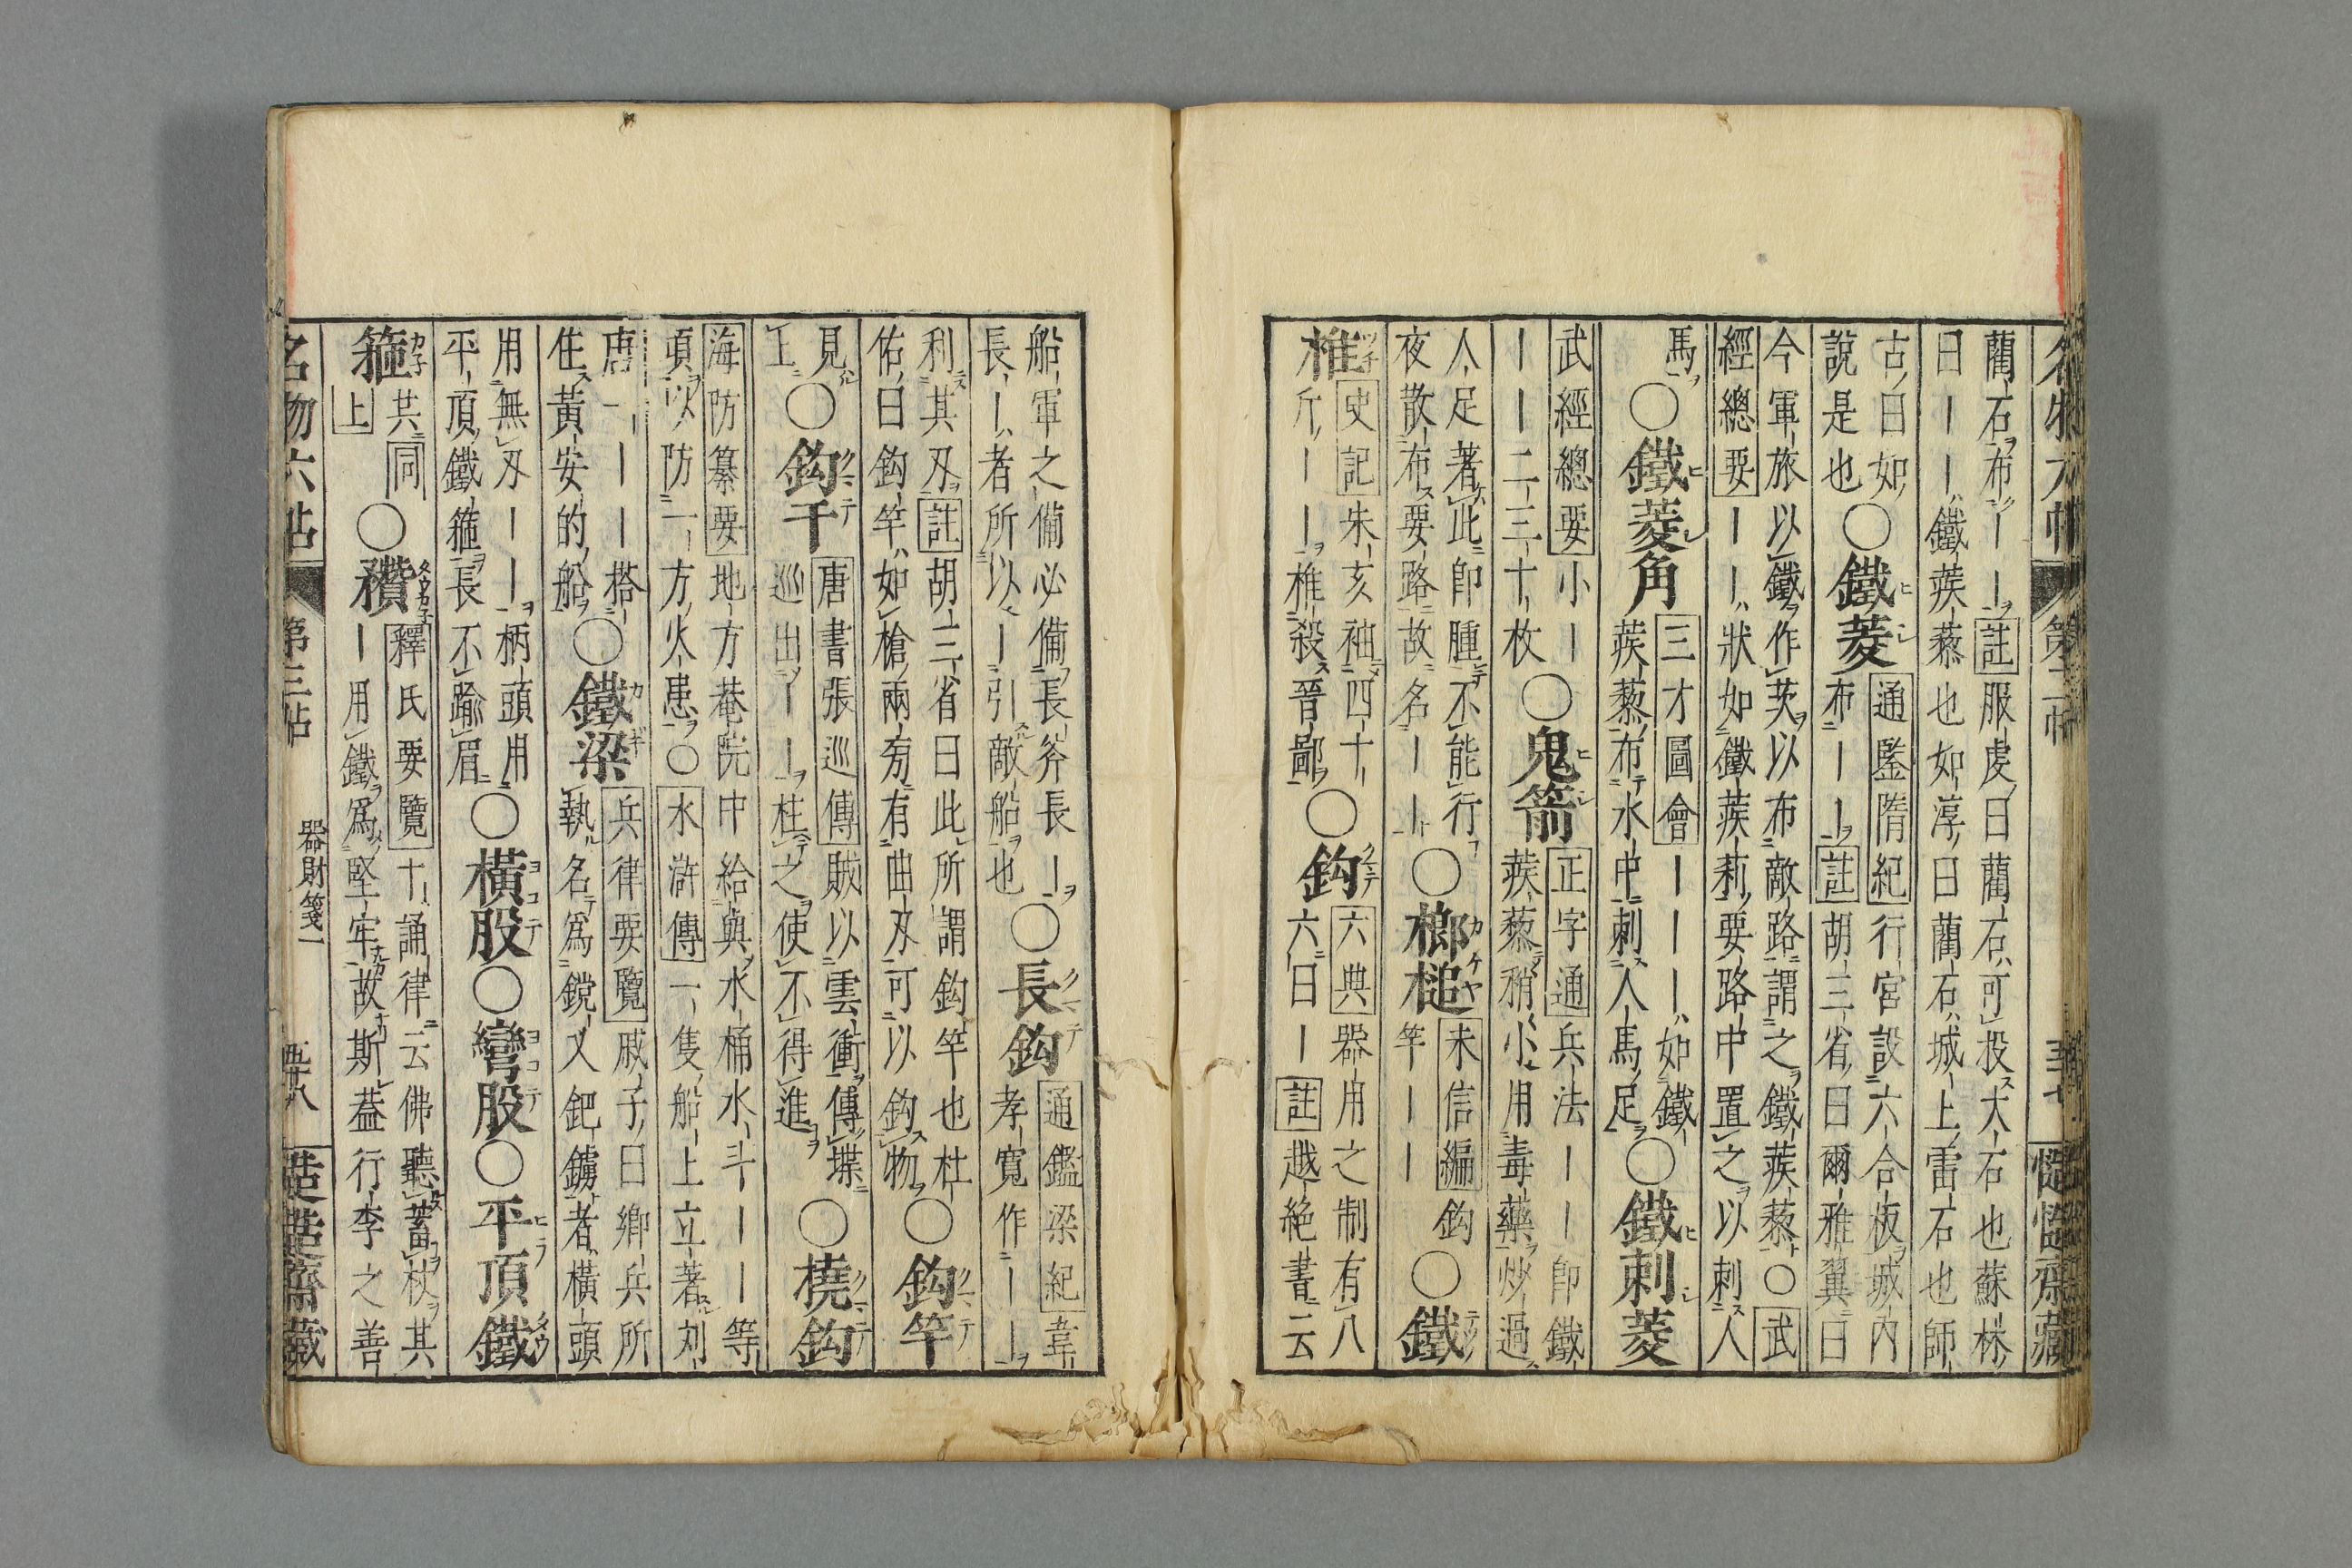 名物六帖 第三帖
藺石布｜｜註服虔曰藺石可投大石也蘇林
曰｜｜鐵蒺藜也如淳曰藺石城上雷石也師
古曰如 說是也 〇鐵菱 通鑒隋紀行宮設六合板城內
布｜｜註胡三省曰爾雅翼曰
今軍旅以鐵作茨以布敵路謂之鐵蒺藜〇武
經總要｜｜狀如鐵蒺莉要路中置之以刺人
馬〇鐵菱角 三才圖會｜｜｜如鐵
蒺藜布水中刺人馬足 〇鐵刺菱
武經總要小｜
｜｜二三十枚 〇鬼箭 正字通兵法｜｜卽鐵
蒺藜稍小用毒藥炒過
人足著此卽腫不能行
夜散布要路故名｜｜ 〇榔槌 未信編鈎
竿｜｜ 〇鐵
椎 史記朱亥袖四十
斤｜｜｜椎殺晉鄙 〇鈎 六典器用之制有八
六曰｜註越絶書云
船軍之備必備長斧長｜
長｜者所以｜引敵船也 〇長鈎 通鑑梁紀韋
孝寬作｜｜
利其刄註胡三省曰此所謂鈎竿也杜
佑曰鈎竿如槍兩旁有曲刄可以鈎物 〇鈎竿
見
上 〇鈎干 唐書張巡傳賊以雲衝傳堞
巡出｜｜拄之使不得進 〇橈鈎
海防纂要地方菴院中給與水桶水斗｜｜等
項以防一方火患〇水滸傳一隻船上立著刘
唐｜｜｜搭
住黃安的船 〇鐵梁 兵律要覽戚子曰鄉兵所
執名爲鎲又鈀鐪者橫頭
用無刄｜｜柄頭用
平頂鐵箍長不踰眉 〇橫股〇彎股〇平頂鐵
箍 共同
上 〇䂎 釋氏要覽十誦律云佛聽蓄杖其
｜用鐵爲堅牢故斯葢行李之善
名物六帖 第三帖 器財箋一 五十八 𡨴𡨴齋藏